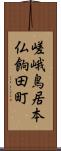 嵯峨鳥居本
仏餉田町